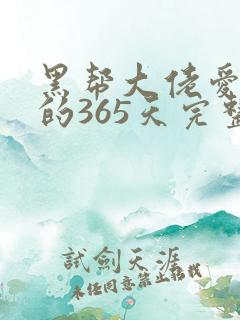 黑帮大佬爱
的365天完整
試劍天涯
未经同意禁止转载